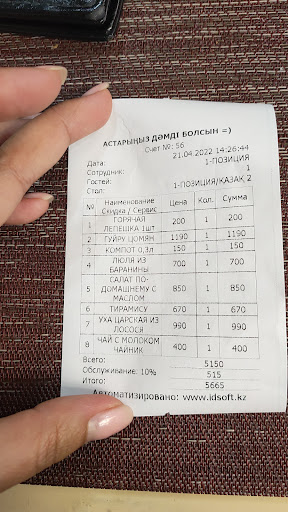 АСТАРЫҢЫЗ ДӘМДІ БОЛСЫН =)
Счет №: 56
Дата: 21.04.2022 14:26:44
Сотрудник: 1-ПОЗИЦИЯ
Гостей: 1
Стол: 1-ПОЗИЦИЯ/КАЗАК 2
№ Наименование Скидка / Сервис Цена Кол. Сумма
1 ГОРЯЧАЯ ЛЕПЕШКА 1шт 200 1 200
2 ГУЙРУ ЦОМЯН 1190 1 1190
3 КОМПОТ 0,3л 150 1 150
4 ЛЮЛЯ ИЗ БАРАНИНЫ 700 1 700
5 САЛАТ ПО-ДОМАШНЕМУ С МАСЛОМ 850 1 850
6 ТИРАМИСУ 670 1 670
7 УХА ЦАРСКАЯ ИЗ ЛОСОСЯ 990 1 990
8 ЧАЙ С МОЛОКОМ ЧАЙНИК 400 1 400
Всего: 5150
Обслуживание: 10% 515
Итого: 5665
Автоматизировано: www.idsoft.kz